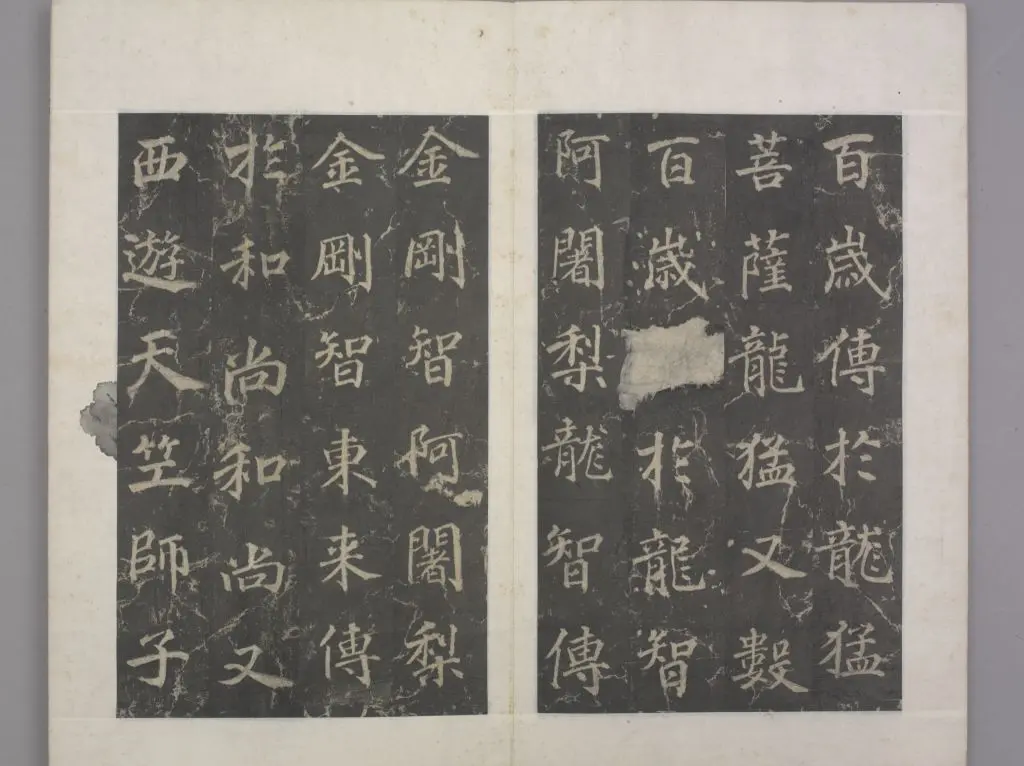 百歲傳於龍猛
菩薩龍猛又數
百歲於龍智
阿闍梨龍智傳
金剛智阿闍梨
金剛智東来傳
於和尚和尚又
西遊天竺師子